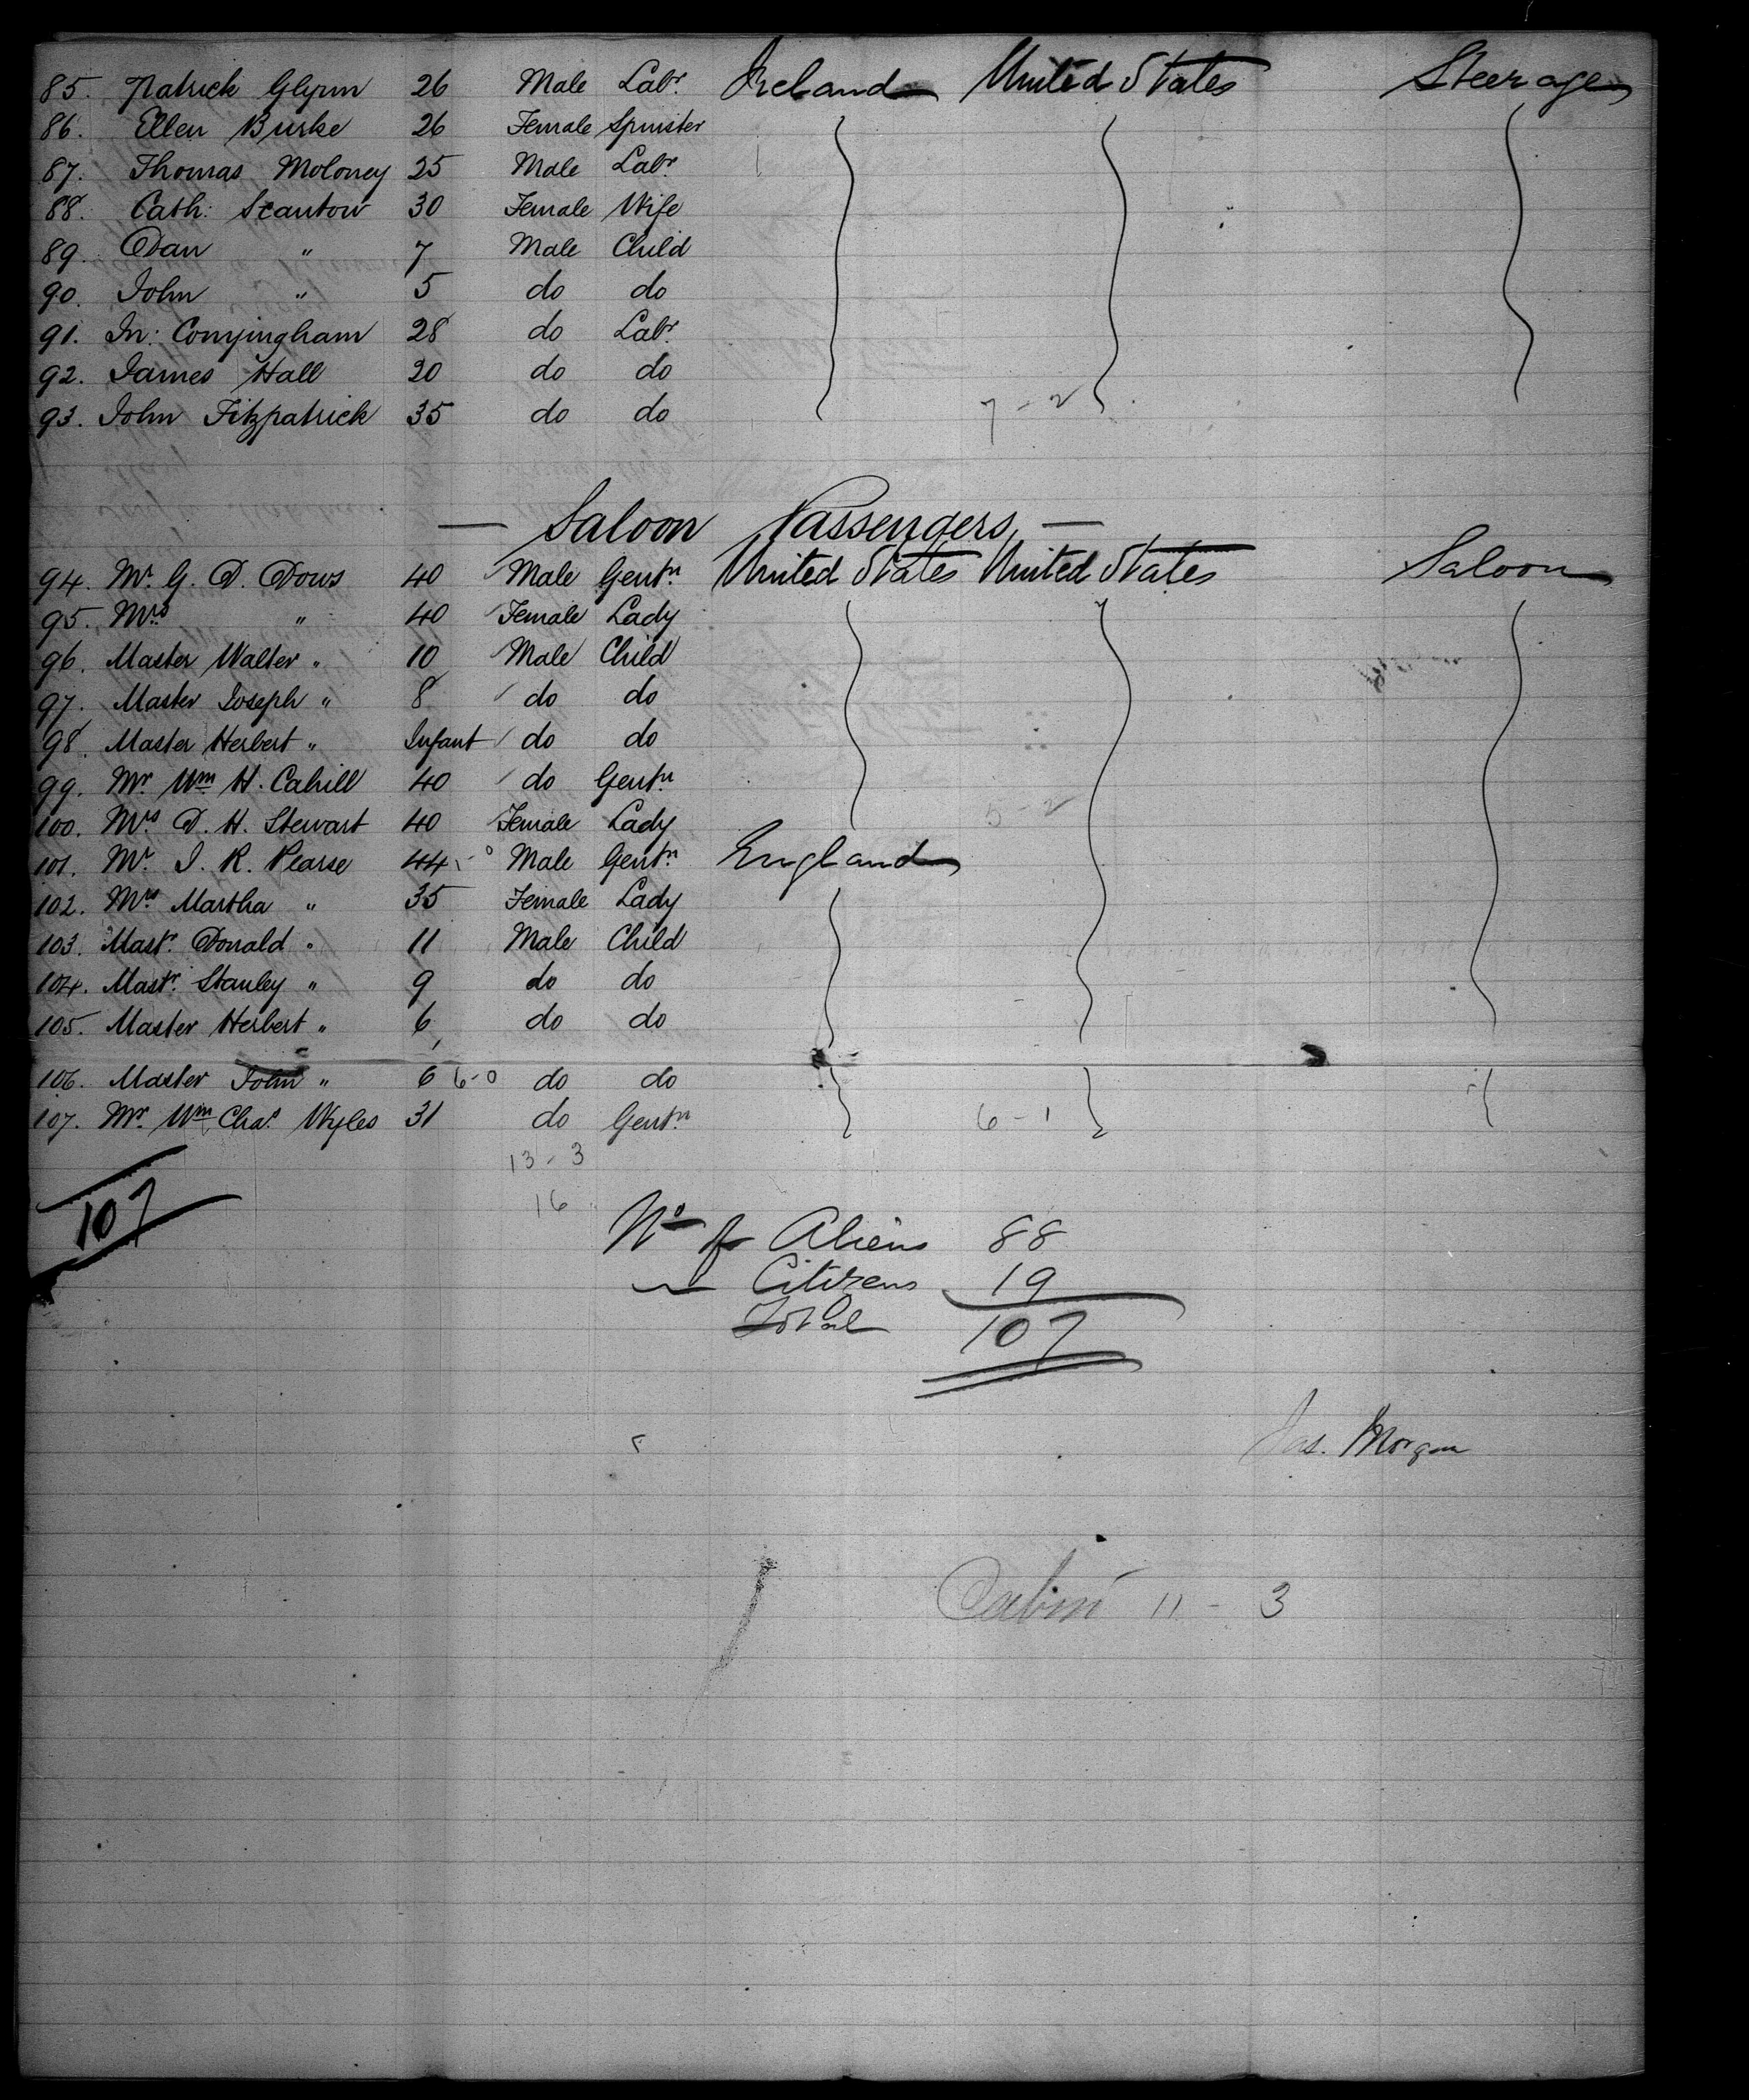 85. Patrick Glynn 26 Male Labr. Ireland United States Steerage
86. Ellen Burke 26 Female Spinster
87. Thomas Moloney 25 Male Labr.
88. Cath: Scanton 30 Female Wife
89. Dan " 7 Male Child
90. John " 5 do do
91. Jn: Connyingham 28 do Labr.
92. James Hall 20 do do
93. John Fitzpatrick 35 do do
7-2
— Saloon Passengers —
94. Mr. G. D. Dows 40 Male Gentn. United States United States Saloon
95. Mrs. " 40 Female Lady
96. Master Walter " 10 Male Child
97. Master Joseph " 8 do do
98. Master Herbert " Infant do do
99. Mr. Wm. H. Cahill 40 do Gentn.
100. Mrs. D. H. Stewart 40 Female Lady 5-2
101. Mr. J. R. Pearse 44 Male Gentn. England
102. Mrs. Martha " 35 Female Lady
103. Mastr. Donald " 11 Male Child
104. Mastr. Stanley " 9 do do
105. Master Herbert " 6 do do
106. Master John " 6 6-0 do do
107. Mr. Wm. Chas. Wyles 31 do Gentn. 6-1
13-3
16
107
No. of Aliens 88
" Citizens 19
Total 107
Jas. Morgan
Cabin 11 - 3